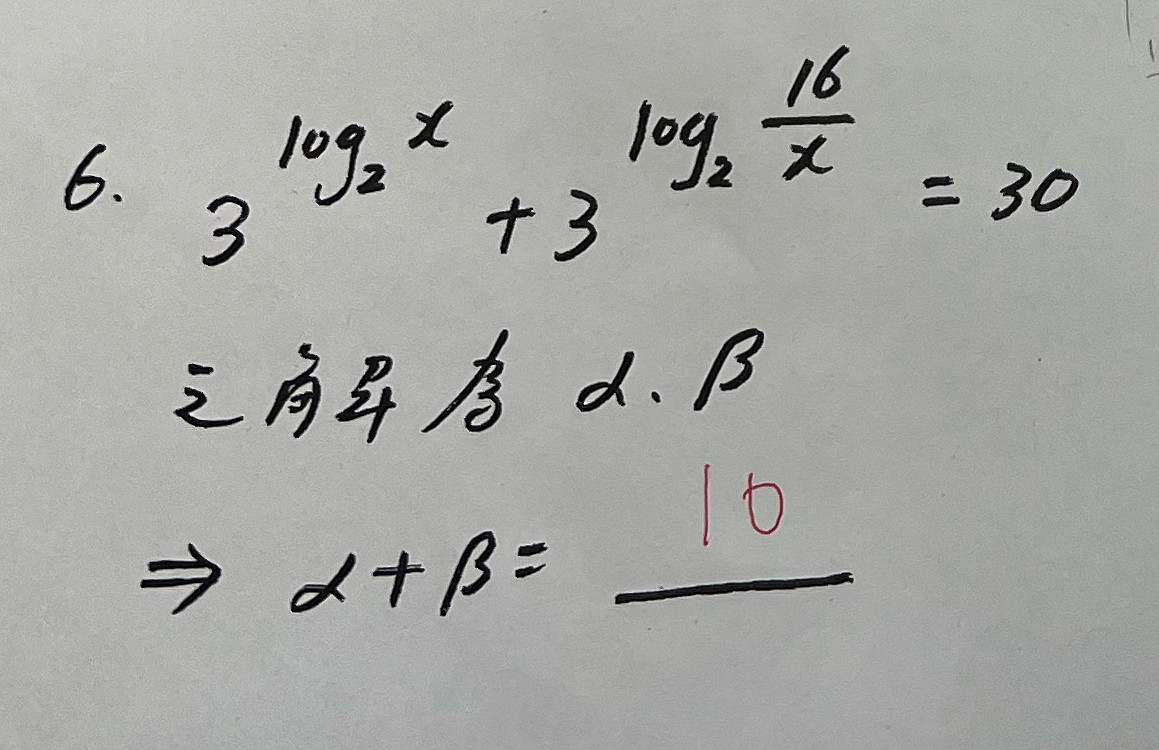 6. 3^{log_2 x} + 3^{log_2 \frac{16}{x}} = 30
之解為 α、β
⇒ α+β= 10